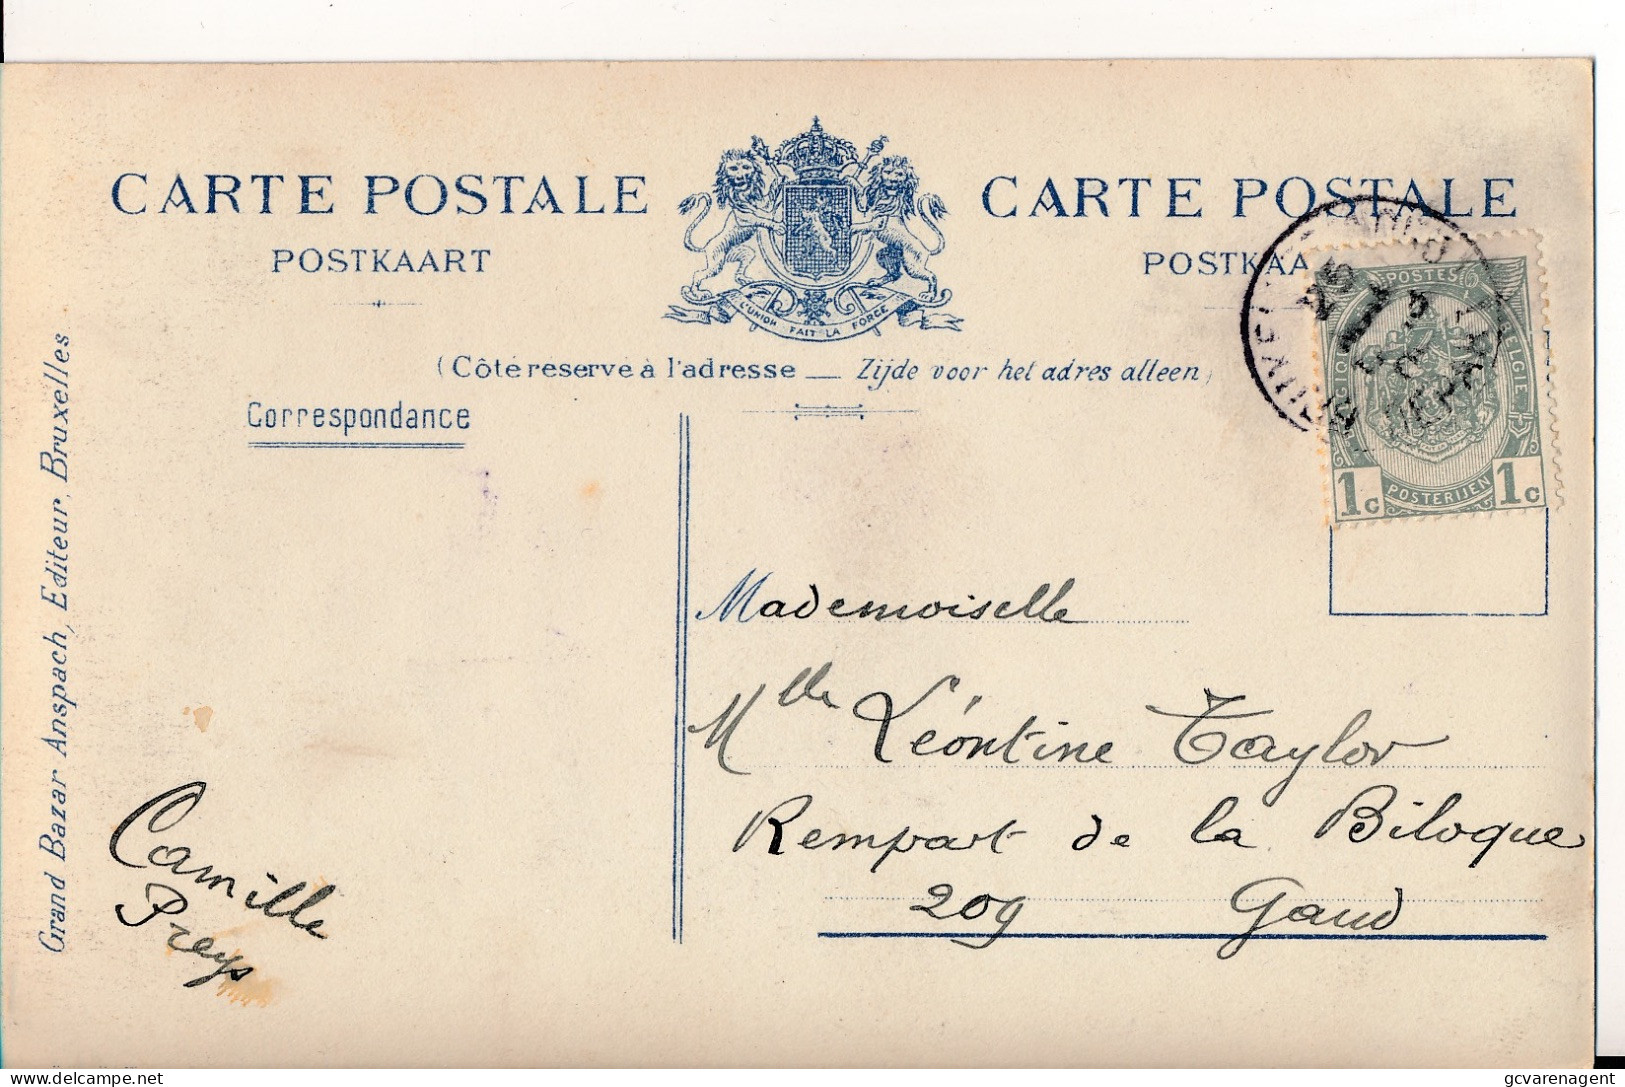 CARTE POSTALE
POSTKAART
L'UNION FAIT LA FORCE
CARTE POSTALE
POSTKAA
(Côté reservé à l'adresse — Zijde voor het adres alleen)
Correspondance
Grand Bazar Anspach, Editeur, Bruxelles
POSTES
BELGIE
1c POSTERIJEN 1c
Mademoiselle
Mlle Léontine Taylor
Rempart de la Biloque
209 Gand
Camille
Preys
gcvarenagent